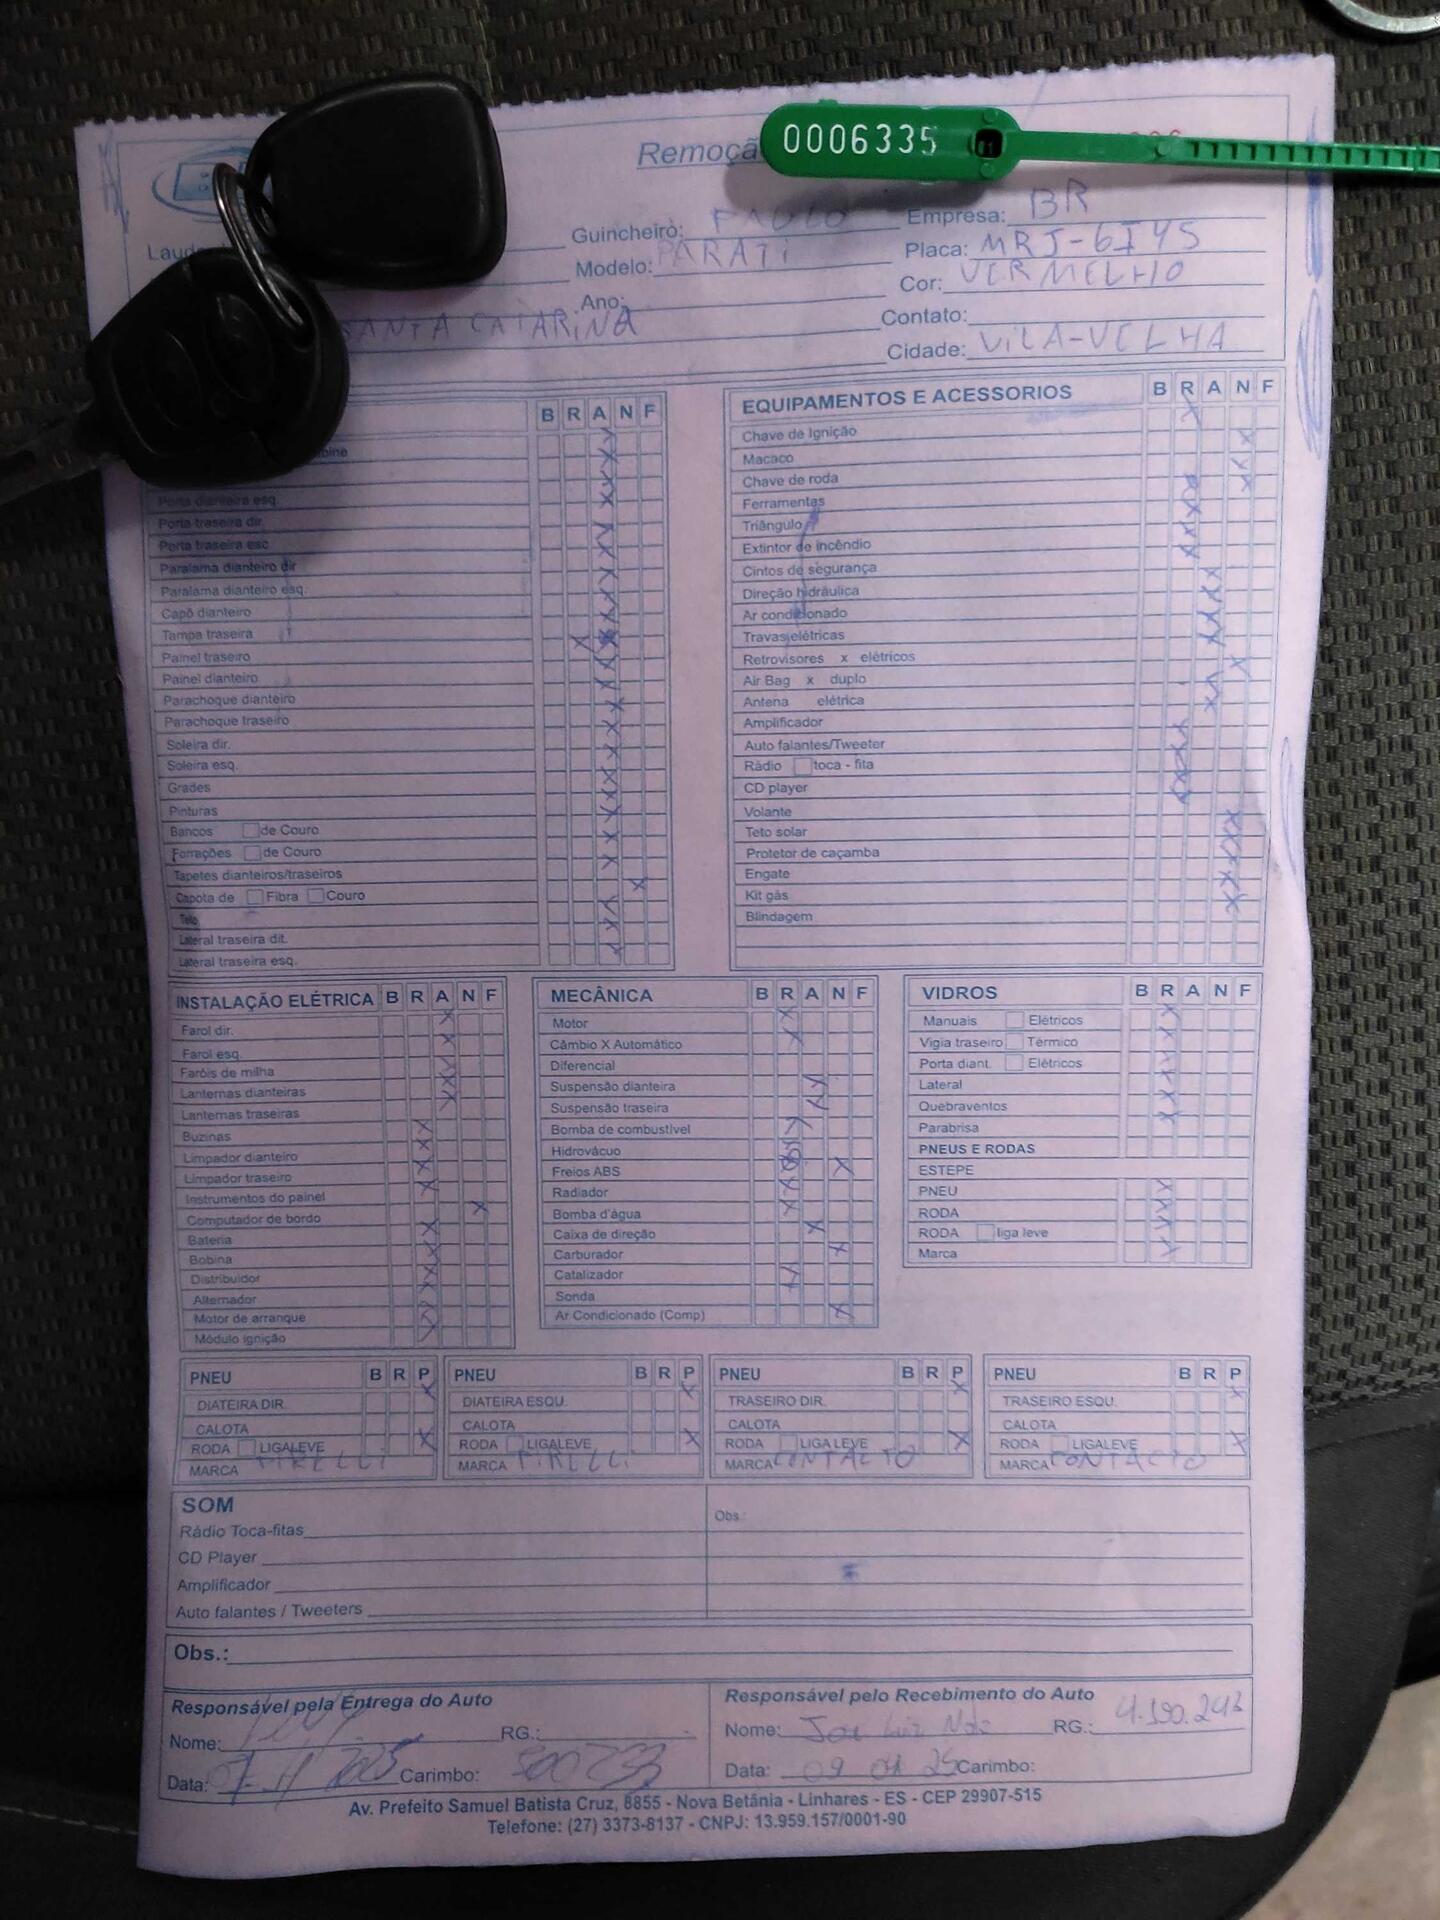 0006335
Guincheiro: PAULO Empresa: BR
Modelo: PARATI Placa: MRJ-6I45
Ano: Cor: VERMELHO
SANTA CATARINA Contato:
Cidade: VILA-VELHA
B R A N F
Porta dianteira esq.
Porta traseira dir.
Porta traseira esc
Paralama dianteiro dir
Paralama dianteiro esq.
Capô dianteiro
Tampa traseira
Painel traseiro
Painel dianteiro
Parachoque dianteiro
Parachoque traseiro
Soleira dir.
Soleira esq.
Grades
Pinturas
Bancos de Couro
Forrações de Couro
Tapetes dianteiros/traseiros
Capota de Fibra Couro
Teto
Lateral traseira dit.
Lateral traseira esq.
EQUIPAMENTOS E ACESSORIOS B R A N F
Chave de Ignição
Macaco
Chave de roda
Ferramentas
Triângulo
Extintor de incêndio
Cintos de segurança
Direção hidráulica
Ar condionado
Travas elétricas
Retrovisores x elétricos
Air Bag x duplo
Antena elétrica
Amplificador
Auto falantes/Tweeter
Rádio toca - fita
CD player
Volante
Teto solar
Protetor de caçamba
Engate
Kit gás
Blindagem
INSTALAÇÃO ELÉTRICA B R A N F
Farol dir.
Farol esq.
Faróis de milha
Lanternas dianteiras
Lanternas traseiras
Buzinas
Limpador dianteiro
Limpador traseiro
Instrumentos do painel
Computador de bordo
Bateria
Bobina
Distribuidor
Alternador
Motor de arranque
Módulo ignição
MECÂNICA B R A N F
Motor
Câmbio X Automático
Diferencial
Suspensão dianteira
Suspensão traseira
Bomba de combustível
Hidrovácuo
Freios ABS
Radiador
Bomba d'água
Caixa de direção
Carburador
Catalizador
Sonda
Ar Condicionado (Comp)
VIDROS B R A N F
Manuais Elétricos
Vigia traseiro Térmico
Porta diant. Elétricos
Lateral
Quebraventos
Parabrisa
PNEUS E RODAS
ESTEPE
PNEU
RODA
RODA liga leve
Marca
PNEU B R P
DIATEIRA DIR.
CALOTA
RODA LIGALEVE
MARCA PIRELLI
PNEU B R P
DIATEIRA ESQU.
CALOTA
RODA LIGALEVE
MARCA PIRELLI
PNEU B R P
TRASEIRO DIR.
CALOTA
RODA LIGALEVE
MARCA CONTACTO
PNEU B R P
TRASEIRO ESQU.
CALOTA
RODA LIGALEVE
MARCA CONTACTO
SOM
Rádio Toca-fitas
CD Player
Amplificador
Auto falantes / Tweeters
Obs.:
Obs.:
Responsável pela Entrega do Auto
Nome: RG.:
Data: Carimbo:
Responsável pelo Recebimento do Auto
Nome: Luiz RG.: 4.190.242
Data: 09 Carimbo:
Av. Prefeito Samuel Batista Cruz, 8855 - Nova Betânia - Linhares - ES - CEP 29907-515
Telefone: (27) 3373-8137 - CNPJ: 13.959.157/0001-90